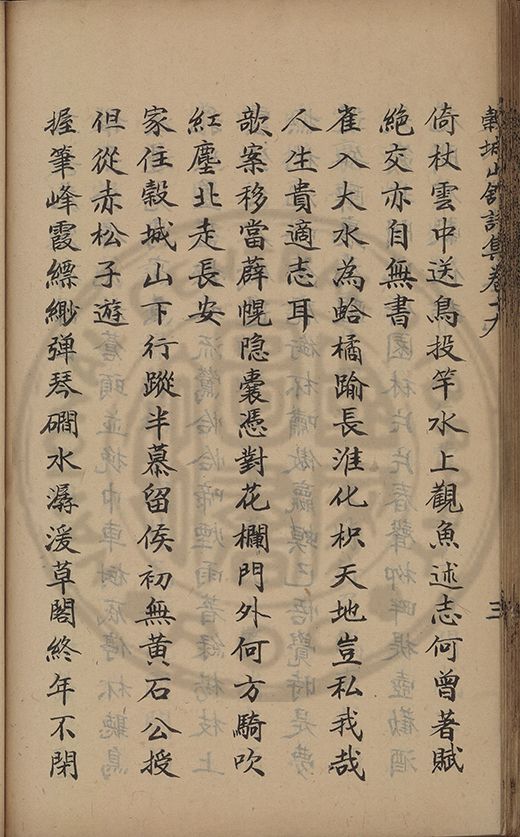 穀城山館詩集卷十九
三
倚杖雲中送鳥投竿水上觀魚述志何曾著賦
絶交亦自無書
雀入大水為蛤橘踰長淮化枳天地豈私我哉
人生貴適志耳
欹案移當薜幌隐囊憑對花欄門外何方騎吹
紅塵北走長安
家住穀城山下行蹤半慕留侯初無黃石公授
但從赤松子遊
握筆峰霞縹緲弹琴磵水潺湲草閣終年不閉